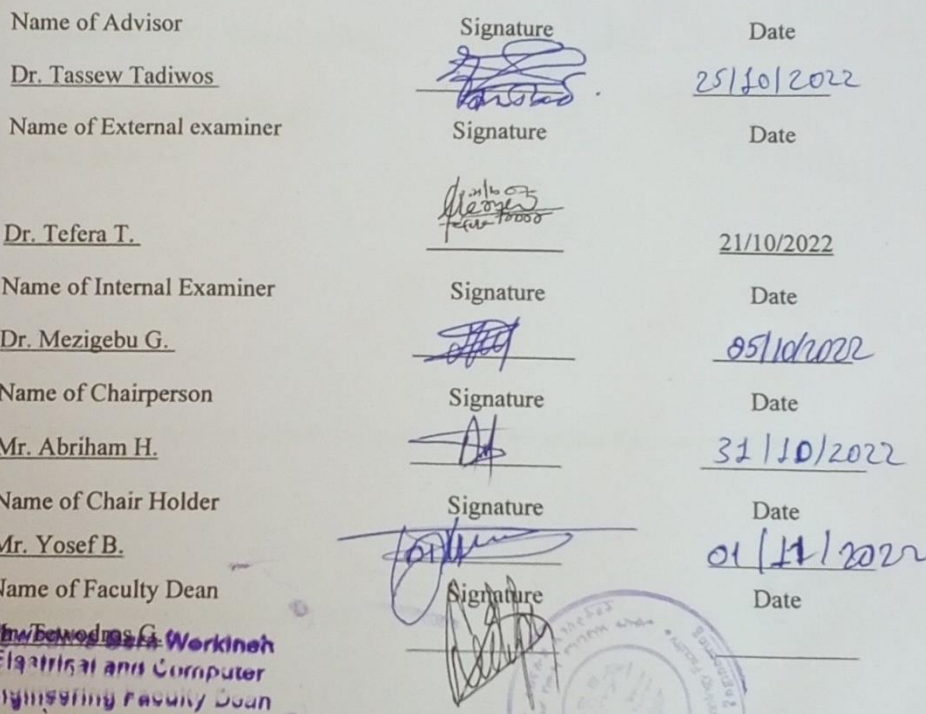 Name of Advisor Signature Date
Dr. Tassew Tadiwos 25/10/2022
Name of External examiner Signature Date
Dr. Tefera T. 21/10/2022
Name of Internal Examiner Signature Date
Dr. Mezigebu G. 05/10/2022
Name of Chairperson Signature Date
Mr. Abriham H. 31/10/2022
Name of Chair Holder Signature Date
Mr. Yosef B. 01/11/2022
Name of Faculty Dean Signature Date
Tewodros G. Workineh
Electrical and Computer
Engineering Faculty Dean